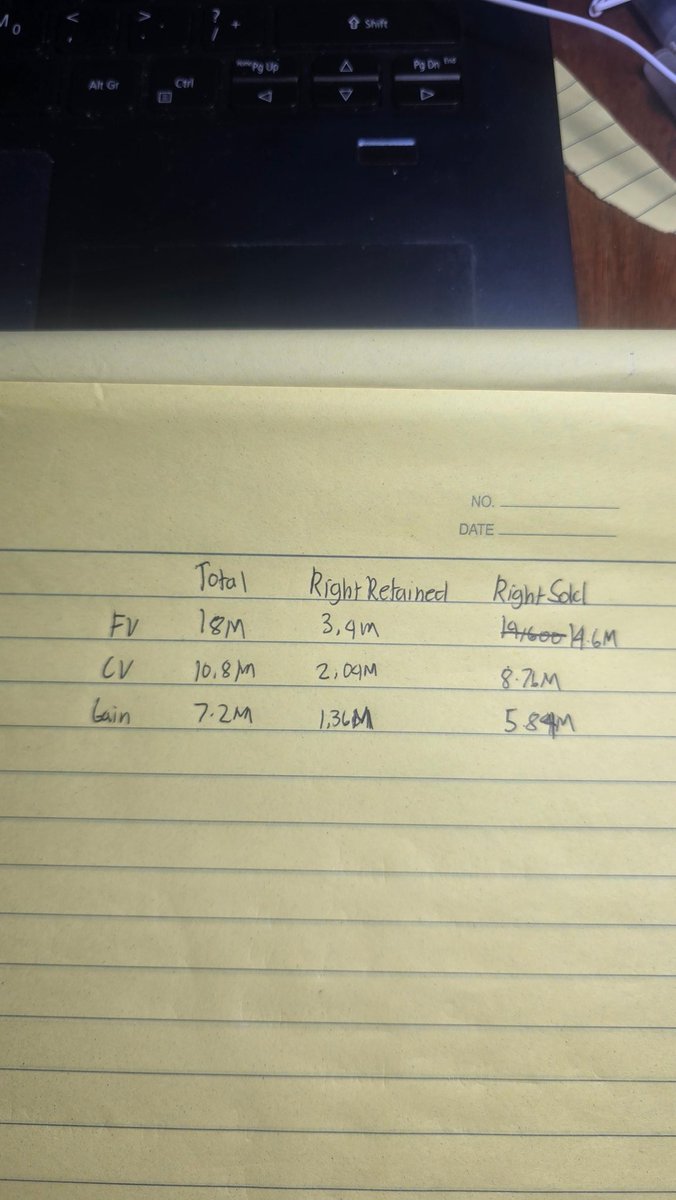 M 0
< ,
> .
? / +
⇧ Shift
Alt Gr
Ctrl
Home Pg Up
Pg Dn End
NO.
DATE
Total Right Retained Right Sold
FV 18M 3,4M 14,600 14.6M
CV 10.8M 2,04M 8.76M
Gain 7.2M 1,36M 5.84M